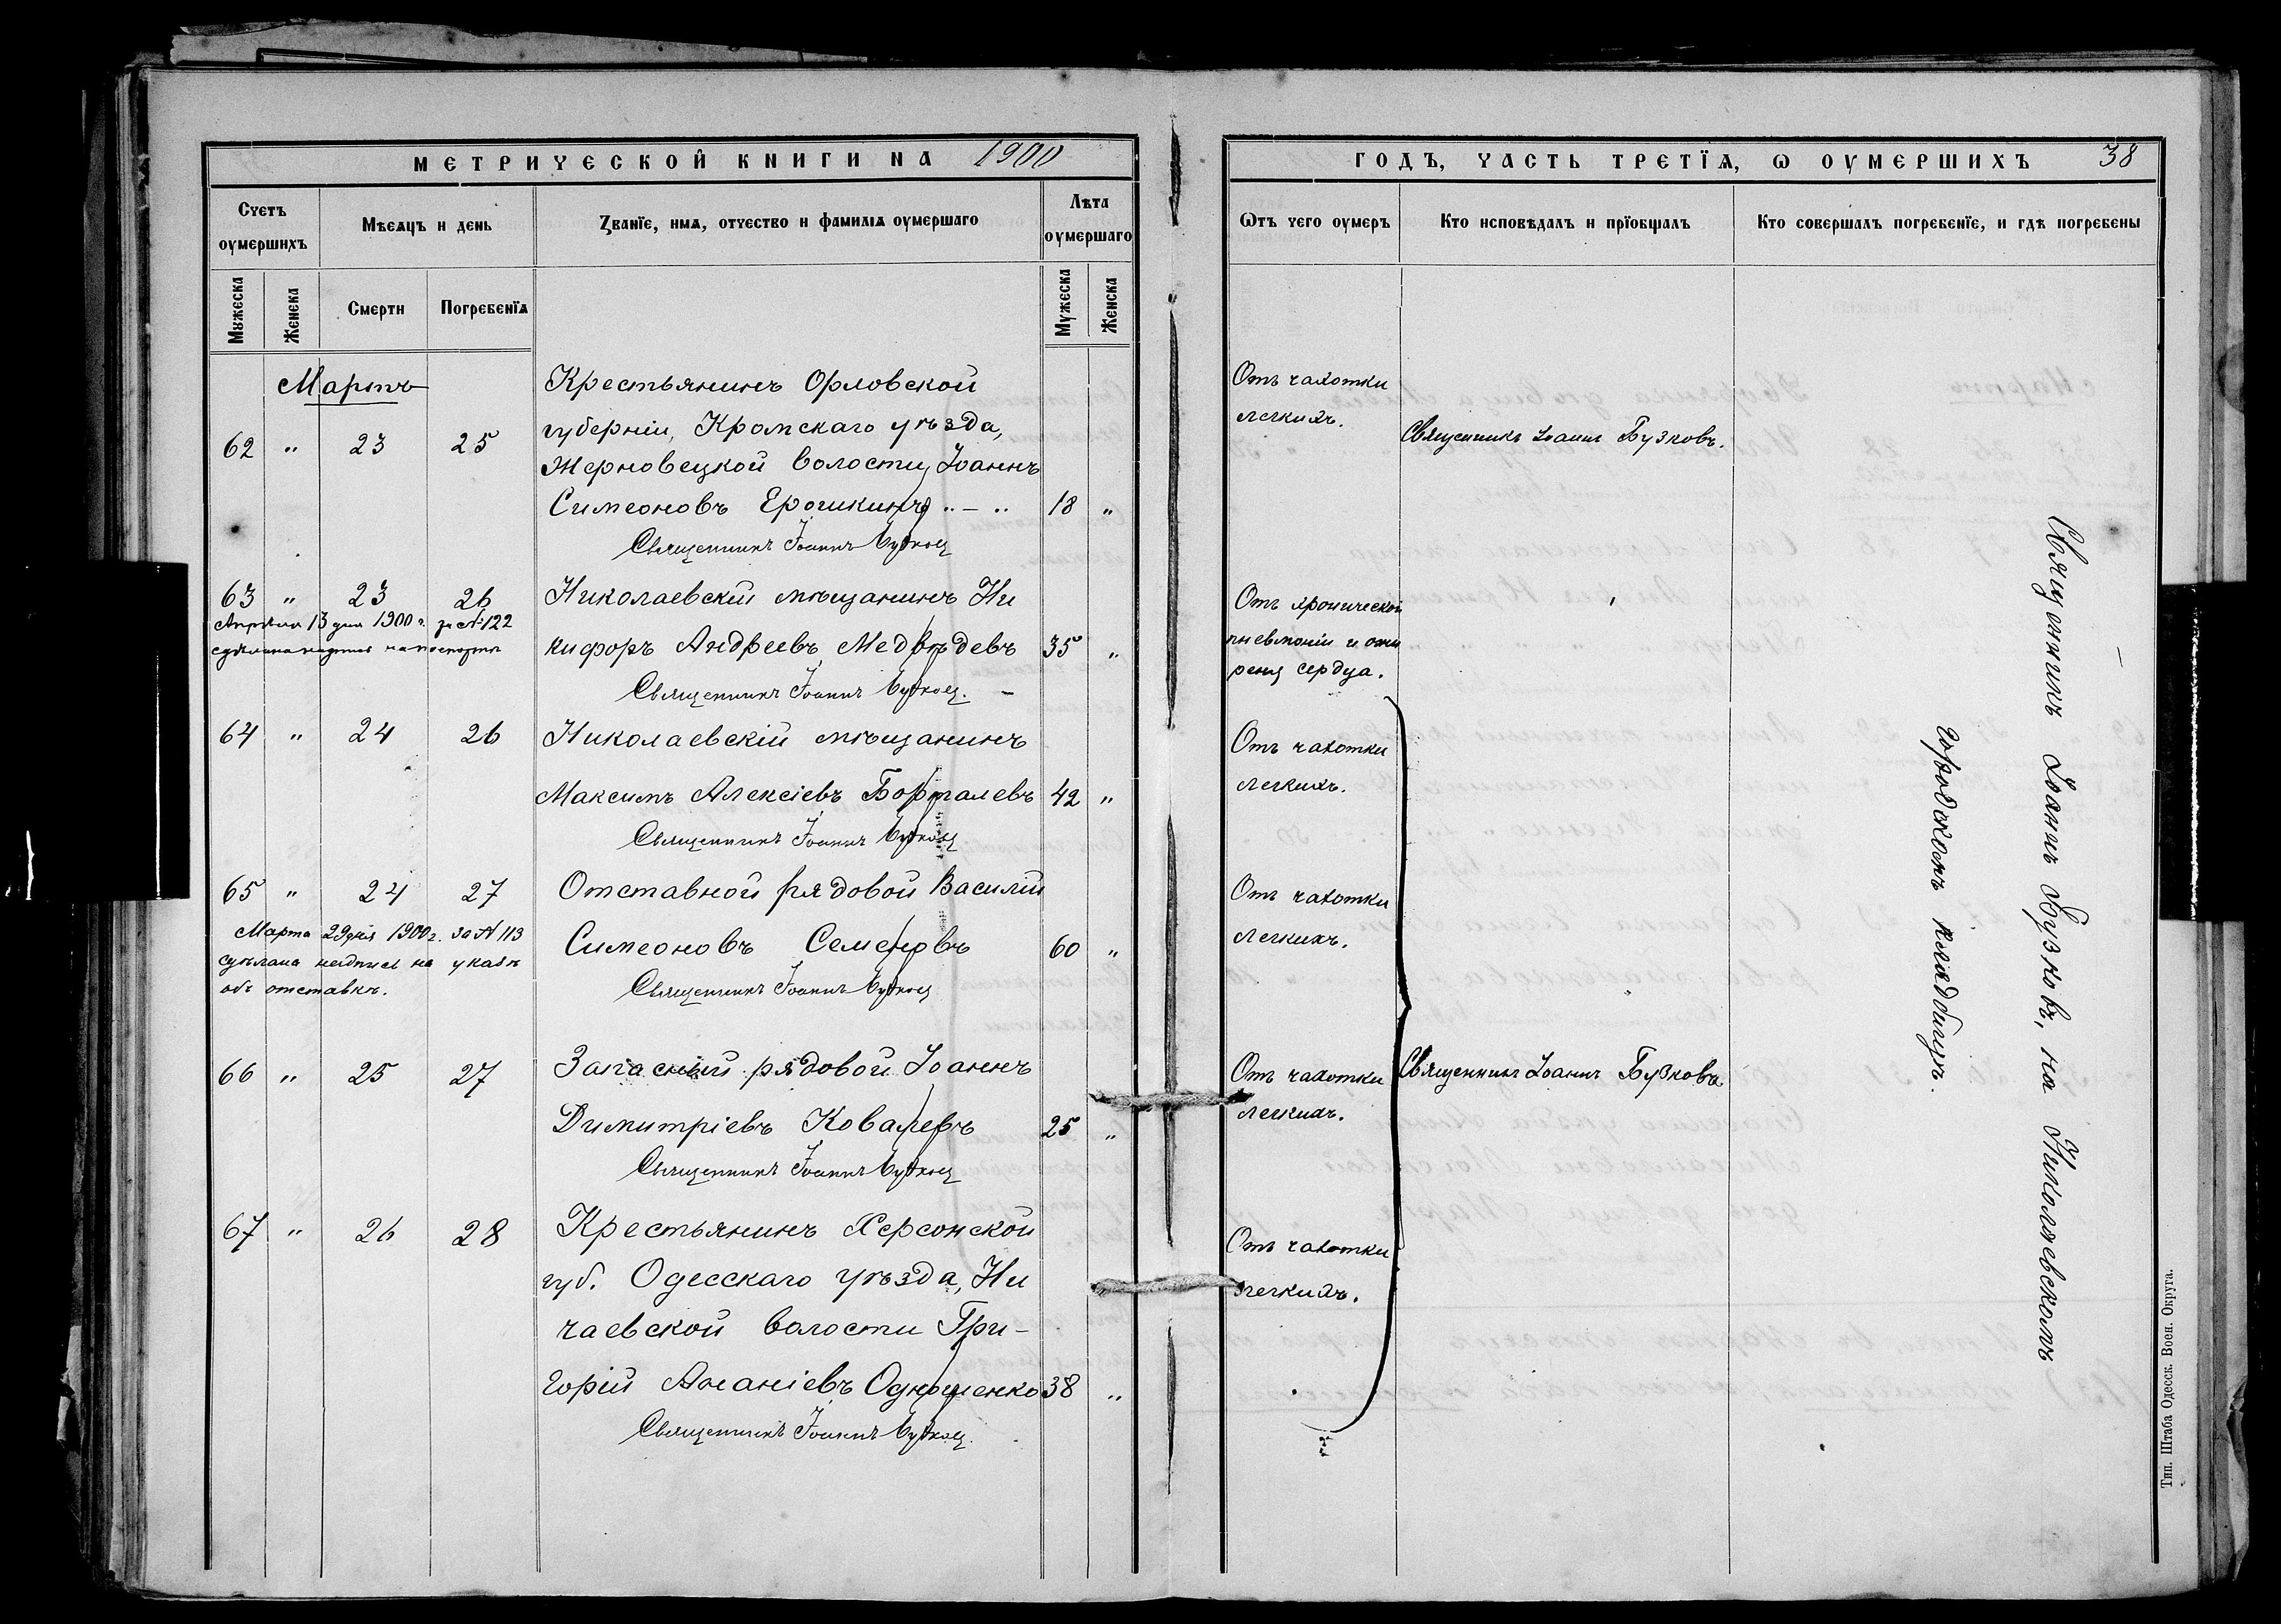 МЕТРИЧЕСКОЙ КНИГИ НА 1900
Счетъ оумершихъ
Мѣсяцъ и день
Званїе, имя, отчество и фамилїя оумершаго
Лѣта оумершаго
Мужеска
Женска
Смерти
Погребенїя
Мужеска
Женска
Мартъ
Крестьянинъ Орловской
губерніи, Кромскаго уѣзда,
62 " 23 25
Жерновецкой волости, Іоаннъ
Симеоновъ Ерошкинъ .. — .. 18 "
Священникъ Іоаннъ Бузковъ
63 " 23 26 Николаевскій мѣщанинъ Ни
Апрѣля 13 дня 1900 г. за № 122
сдѣлана надпись на паспортѣ
кифоръ Андреевъ Медвѣдевъ 35 "
Священникъ Іоаннъ Бузковъ. —
64 " 24 26 Николаевскій мѣщанинъ
Максимъ Алексіевъ Борталевъ 42 "
Священникъ Іоаннъ Бузковъ
65 " 24 27 Отставной рядовой Василій
Марта 29 дня 1900 г. за № 113
сдѣлана надпись на указѣ
объ отставкѣ.
Симеоновъ Семеновъ 60 "
Священникъ Іоаннъ Бузковъ
66 " 25 27 Запасный рядовой Іоаннъ
Димитріевъ Ковалевъ 25 "
Священникъ Іоаннъ Бузковъ
67 " 26 28 Крестьянинъ Херсонской
губ. Одесскаго уѣзда, Ни
чаевской волости Гри-
горій Ананіевъ 38 "
Священникъ Іоаннъ Бузковъ.
ГОДЪ, ЧАСТЬ ТРЕТЇЯ, Ѡ ОУМЕРШИХЪ 38
Ѿтъ чего оумеръ
Кто исповѣдалъ и прїобщалъ
Кто совершалъ погребенїе, и гдѣ погребены
Отъ чахотки
легкихъ.
Священникъ Іоаннъ Бузковъ.
Отъ хронической
пневмоніи и ожи
ренія сердца.
Отъ чахотки
легкихъ.
Отъ чахотки
легкихъ.
Отъ чахотки
легкихъ.
Священникъ Іоаннъ Бузковъ
Отъ чахотки
легкихъ.
Священникъ Іоаннъ Бузковъ, на Николаевскомъ
городскомъ кладбищѣ.
Тип. Штаба Одесск. Воен. Округа.